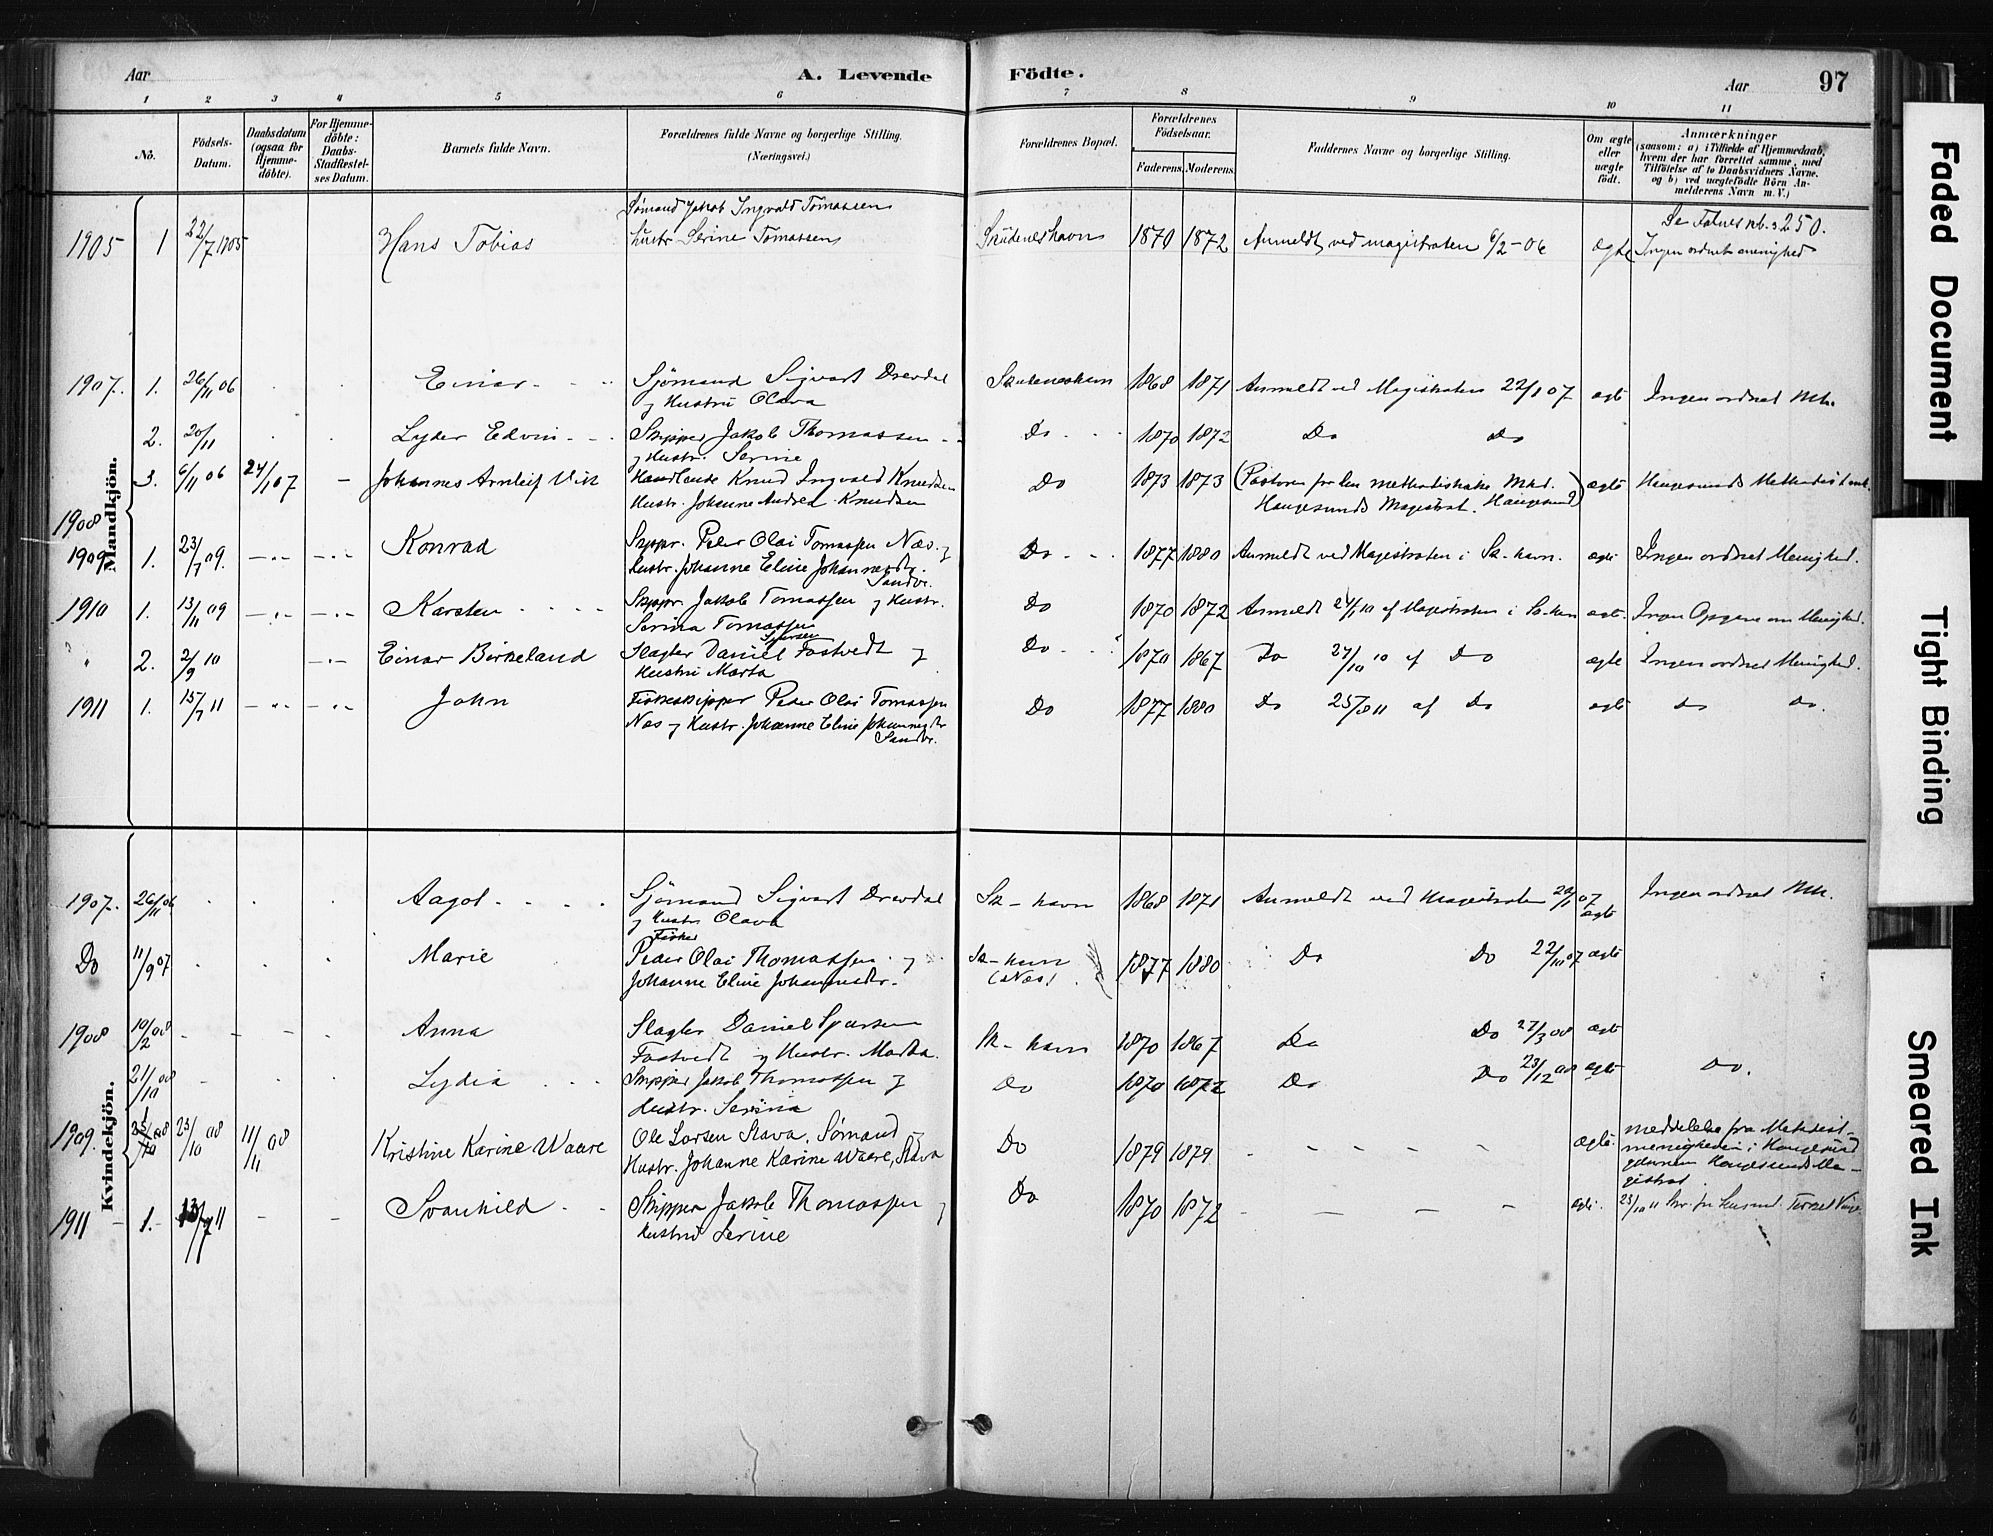 Aar A. Levende Födte. Aar 97
1 2 3 4 5 6 7 8 9 10 11
No. Födsels-Datum. Daabsdatum (ogsaa for Hjemmedöbte). For Hjemmedöbte: Daabs-Stadfestelses Datum. Barnets fulde Navn. Forældrenes fulde Navne og borgerlige Stilling. (Næringsvei.) Forældrenes Bopæl. Forældrenes Födselsaar. Faderens. Moderens. Faddernes Navne og borgerlige Stilling. Om ægte eller uægte födt. Anmærkninger (saasom: a) i Tilfælde af Hjemmedaab, hvem der har forrettet samme, med Tilföielse af to Daabsvidners Navne. og b) ved uægtefödte Börn Anmelderens Navn m. V.)
Mandkjön.
1905 1 22/7 1905 Hans Tobias Sømand Jakob Ingvald Tomassen
hustr Serine Tomassen Skudeneshavn 1870 1872 Anmeldt ved magistraten 6/2-06 ægte Se Falnes nb. 250.
Ingen ordnet menighed
1907. 1. 26/11 06 Einar Sjømand Sigvart Drevdal
og Hustru Olava Skudeneshavn 1868 1871 Anmeldt ved Magistraten 22/1 07 ægte Ingen ordnet Mh.
2. 20/11 Lyder Edvin Skipper Jakob Thomassen
og Hustr. Serine Do 1870 1872 Do Do
3. 6/11 06 24/1 07 - Johannes Arnleif Vik Handlende Knud Ingvald Knudsen
Hustr. Johanne Andrea Knudsen Do 1873 1873 (Pastoren for den methodistiske Mhd.
Haugesunds Magistrat. Haugesund) ægte Haugesunds Methodist mh.
1908
1909 1. 23/7 09. Konrad Skippr. Peder Olai Tomassen Næs og
Hustr. Johanne Eline Johannesdtr.
Sandvr. Do 1877 1880 Anmeldt ved Magistraten i Sk-havn. ægte Ingen ordnet Menighed.
1910 1. 13/11 09 Karsten Skippr. Jakob Tomassen og Hustr.
Serina Tomassen Do 1870 1872 Anmeldt 24/1 10 af Magistraten i Sk-havn ægte. Ingen Opgave om Menighed.
" 2. 2/9 10 Einar Birkeland Slagter Daniel Sjursen Fostvedt og
Hustru Marta Do 1870 1867 Do 27/10 10 af Do ægte Ingen ordnet Menighed.
1911 1. 15/7 11 John Fiskeskipper Peder Olai Tomassen
Næs og Hustr. Johanne Eline Johannesdtr
Sandvr. Do 1877 1880 Do 25/8 11 af Do ægte do Do.
Kvindekjön.
1907. 26/11 06 Aagot Sjømand Sigvart Drevdal
og Hustr Olava Sk-havn 1868 1871 Anmeldt ved Magistraten 22/1 07 ægte Ingen ordnet Mh.
Do 11/9 07 Marie Fisker
Peder Olai Thomassen og
Johanne Eline Johannesdtr. Sk-havn
(Næs) 1877 1880 Do Do 22/10 07 ægte
1908 10/2 08 Anna Slagter Daniel Sjursen
Fostvedt og Hustr. Martha. Sk-havn 1870 1867 Do Do 27/3 08 ægte
21/10 08 Lydia Skipper Jakob Thomassen og
Hustr. Serina Do 1870 1872 Do Do 23/12 08 ægte Do.
1909. 23/10 08 11/11 08 Kristine Karine Waare Ole Larsen Stava, Sømand
Hustr. Johanne Karine Waare, Stava Do 1879 1879. ægte. meddelelse fra Methodist-
menigheden i Haugesund
gjennem Haugesunds Ma-
gistrat.
1911 1. 13/7 11 Svanhild Skipper Jakob Thomassen og
Hustru Serine Do 1870 1872 ægte. 23/10 11
Faded Document
Tight Binding
Smeared Ink